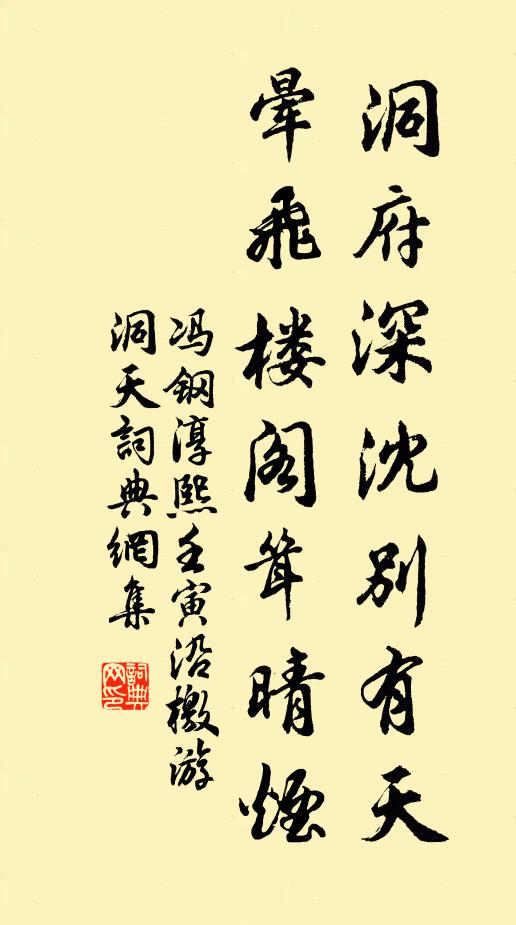 洞府深沈别有天
晕飛楼阁耸晴煙
冯钢淳熙壬寅沿檄游
洞天詞典網集
詞典網印